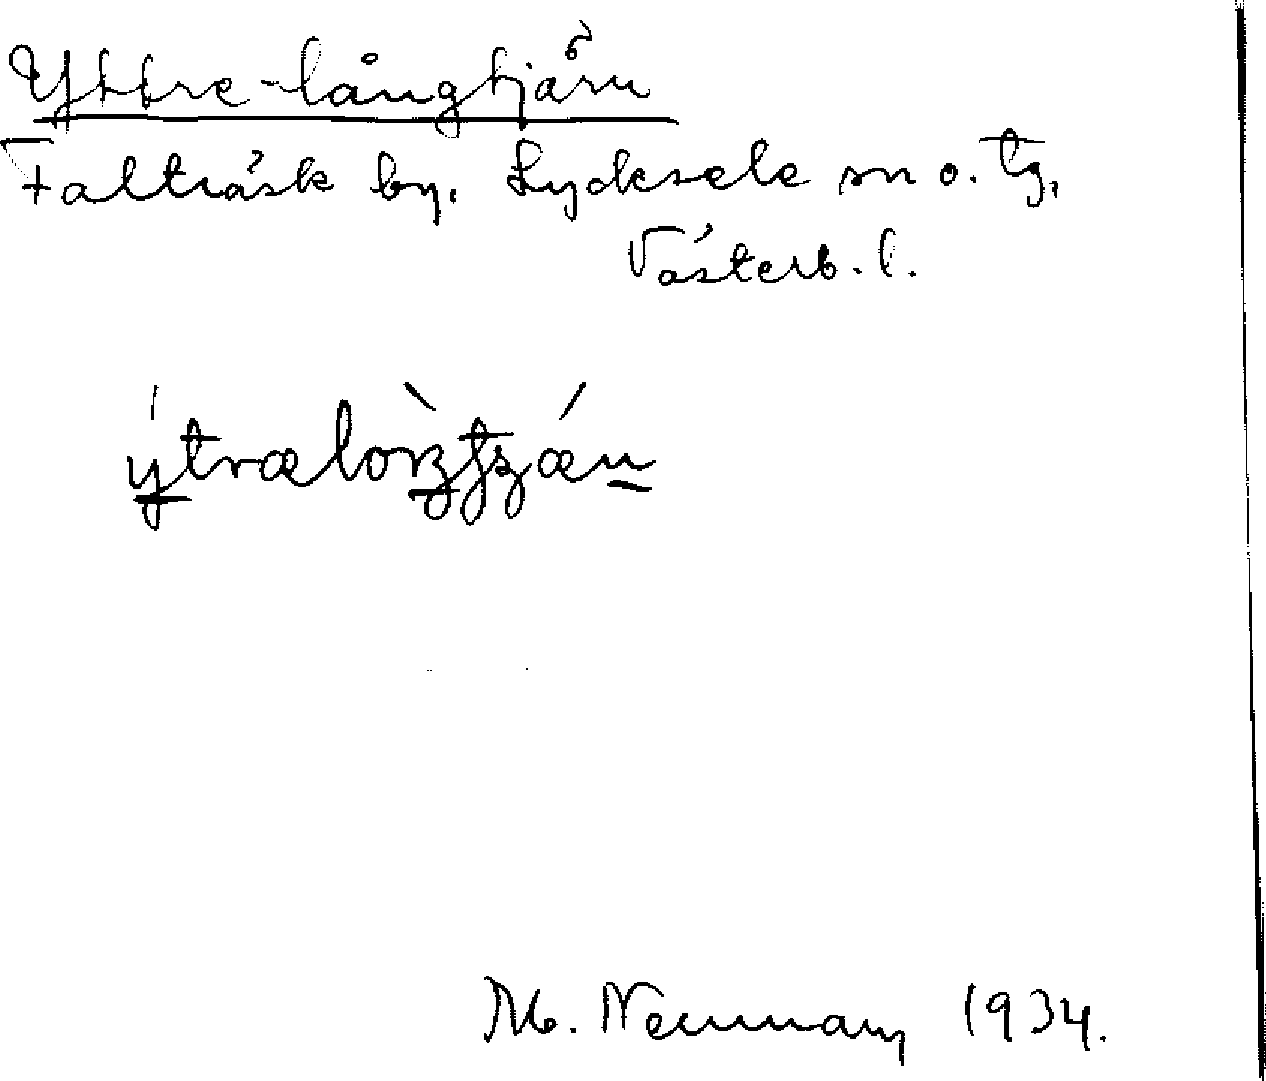 Yttre-långtjärn
Falträsk by. Lycksele sn o. tg.
Västerb. l.
M. Neumann 1934.